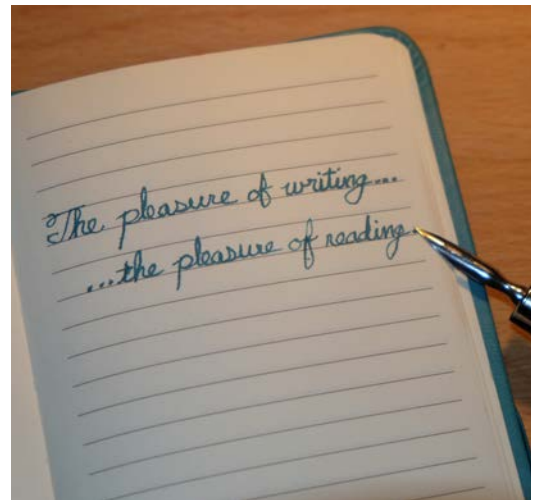 The pleasure of writing...
...the pleasure of reading